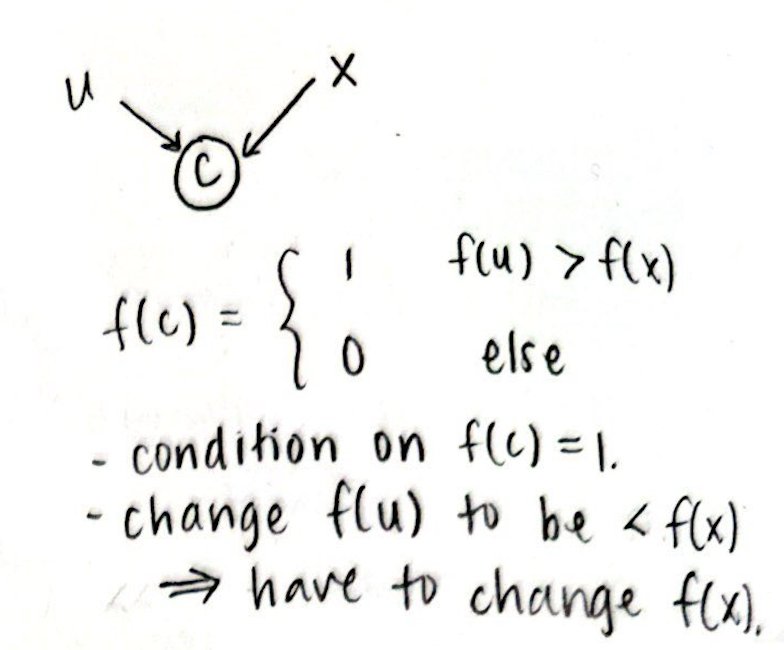 u x
c
f(c) = { 1 f(u) > f(x)
0 else
- condition on f(c) = 1.
- change f(u) to be < f(x)
⇒ have to change f(x).